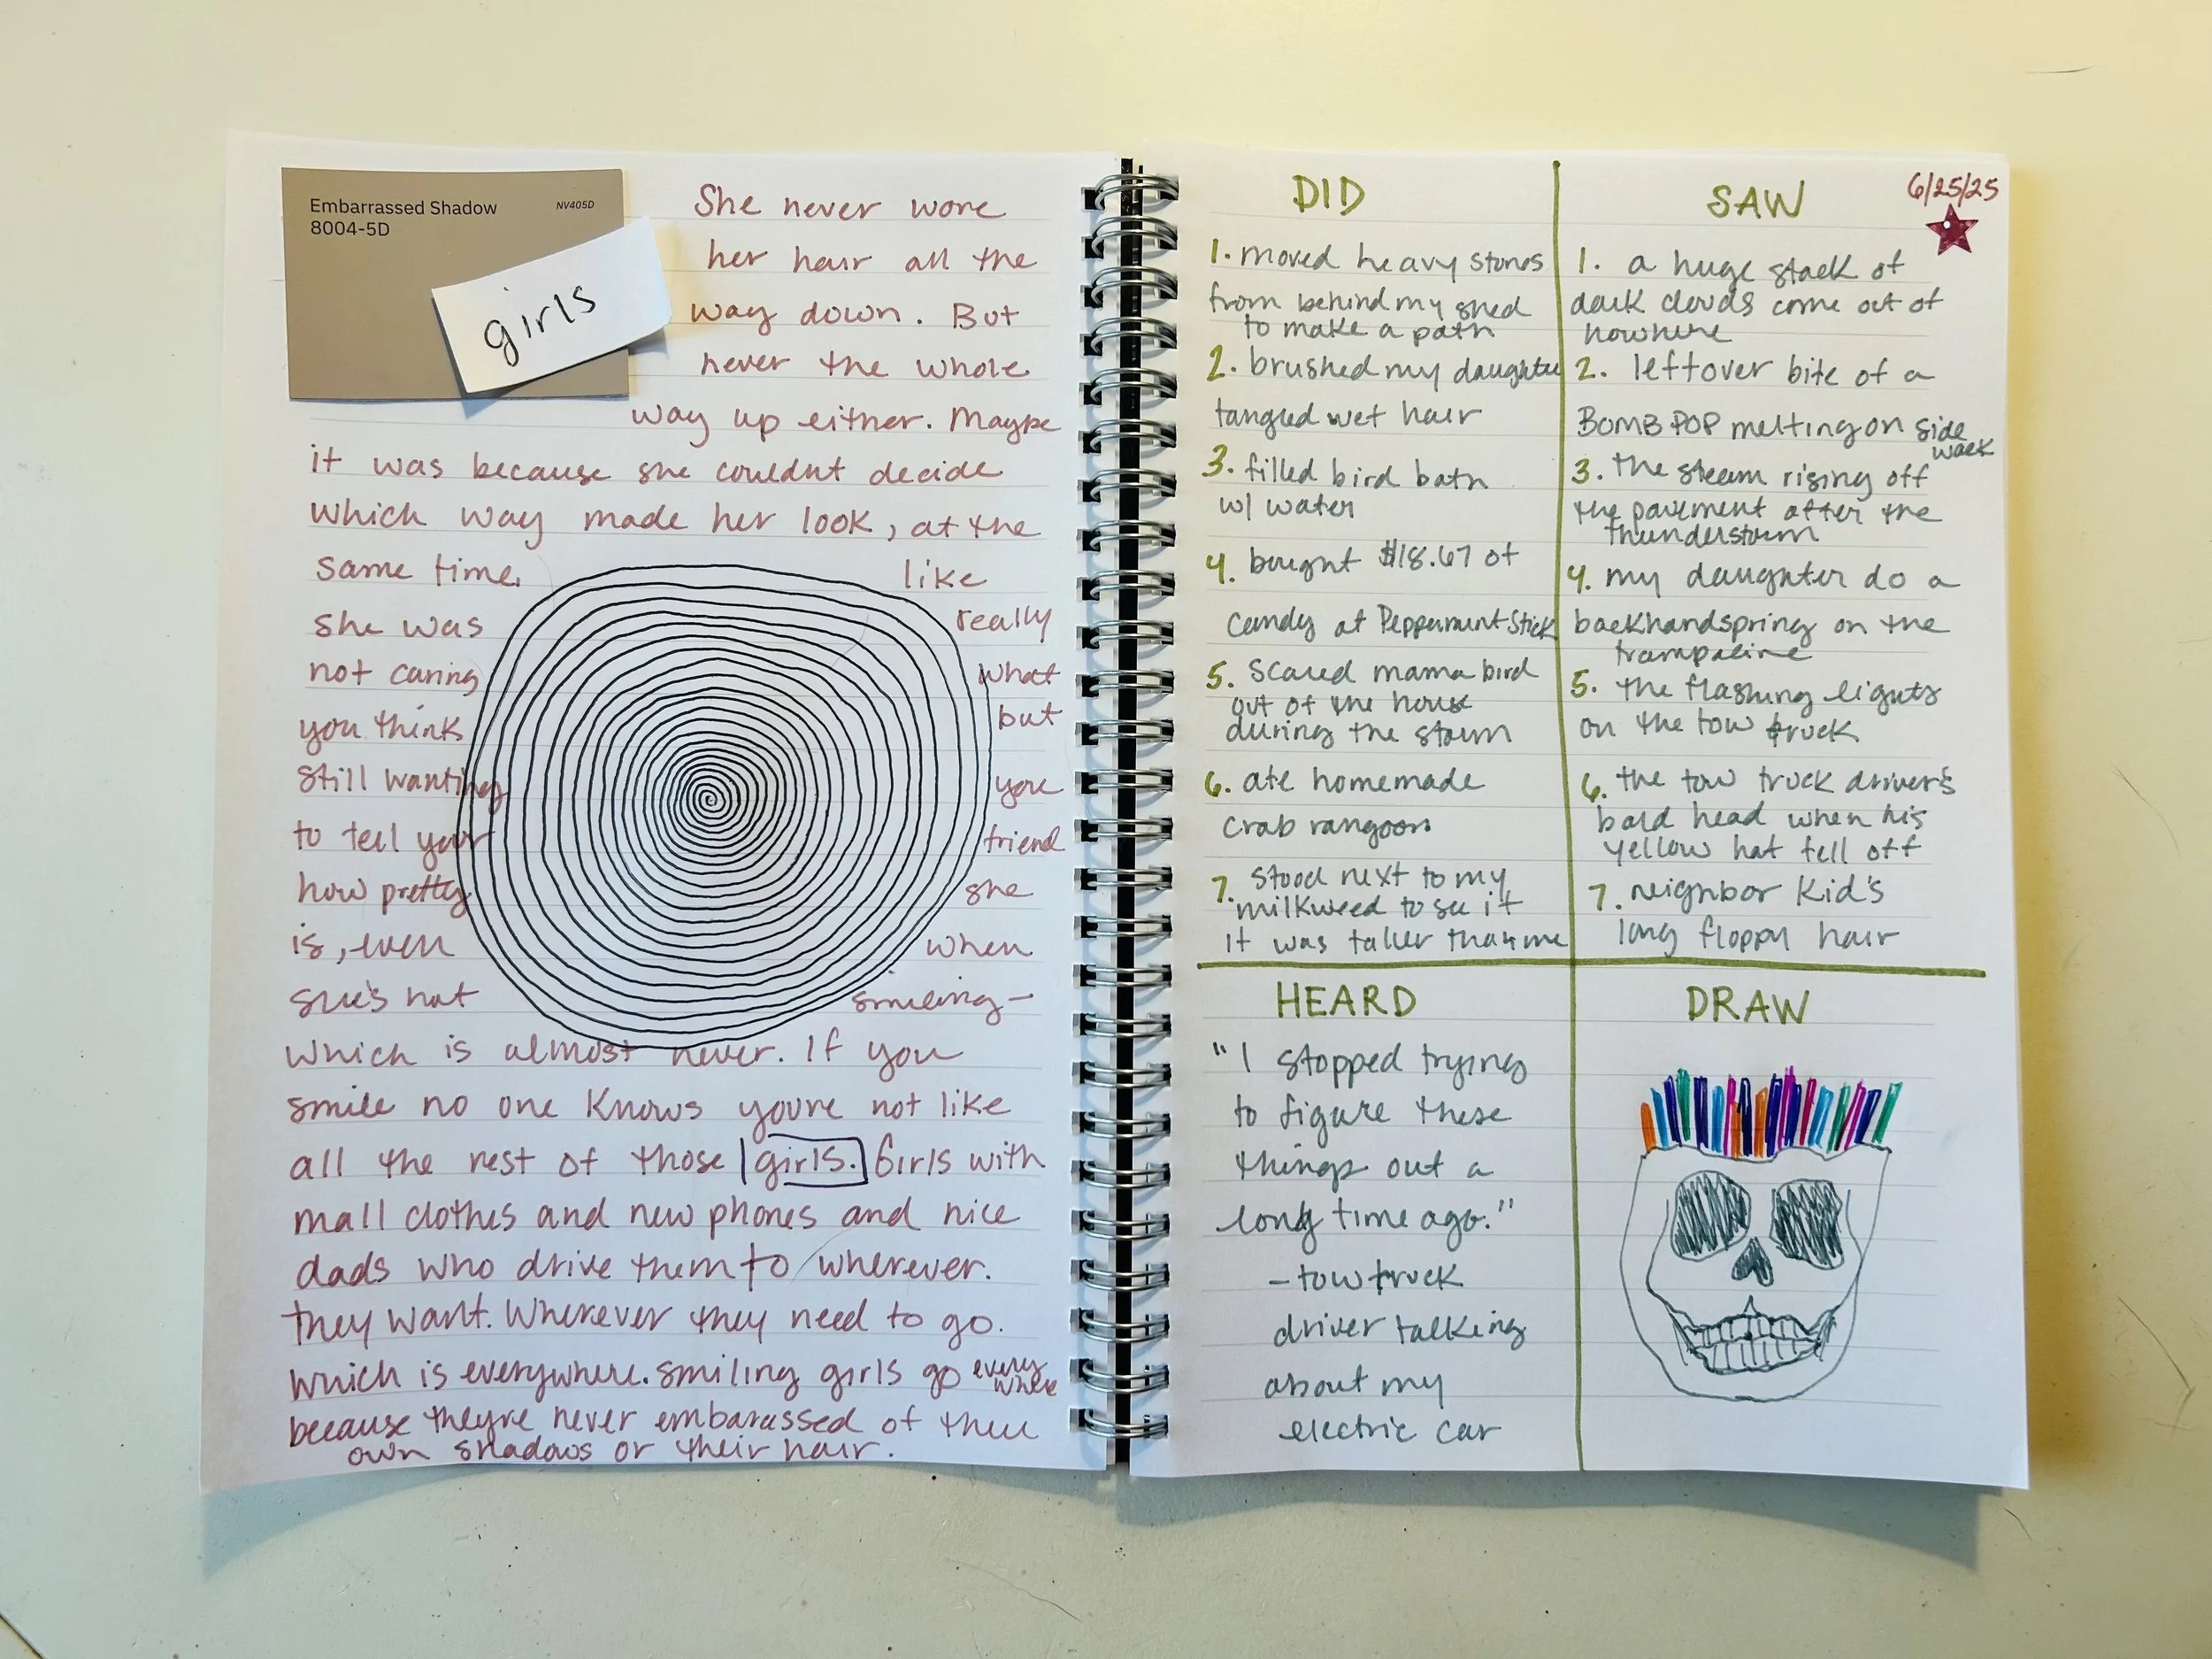 Embarrassed Shadow
NV405D
8004-5D
girls
She never wore
her hair all the
way down. But
never the whole
way up either. Maybe
it was because she couldnt decide
which way made her look, at the
same time, like
she was really
not caring what
you think but
still wanting you
to tell your friend
how pretty she
is, even when
she's not smiling—
which is almost never. If you
smile no one knows youre not like
all the rest of those girls. Girls with
mall clothes and new phones and nice
dads who drive them to wherever.
they want. Wherever they need to go.
which is everywhere. smiling girls go every
where
because theyre never embarassed of their
own shadows or their hair.
6/25/25
DID
1. moved heavy stones
from behind my shed
to make a path
2. brushed my daughter
tangled wet hair
3. filled bird bath
w/ water
4. bought $18.67 of
candy at Peppermint Stick
5. scared mama bird
out of the house
during the storm
6. ate homemade
crab rangoon
7. stood next to my
milkweed to see if
it was taller than me
SAW
1. a huge stack of
dark clouds come out of
nowhere
2. leftover bite of a
BOMB POP melting on side
walk
3. the steam rising off
the pavement after the
thunderstorm
4. my daughter do a
backhandspring on the
trampoline
5. the flashing lights
on the tow truck
6. the tow truck driver's
bald head when his
yellow hat fell off
7. neighbor kid's
long floppy hair
HEARD
"I stopped trying
to figure these
things out a
long time ago."
- tow truck
driver talking
about my
electric car
DRAW